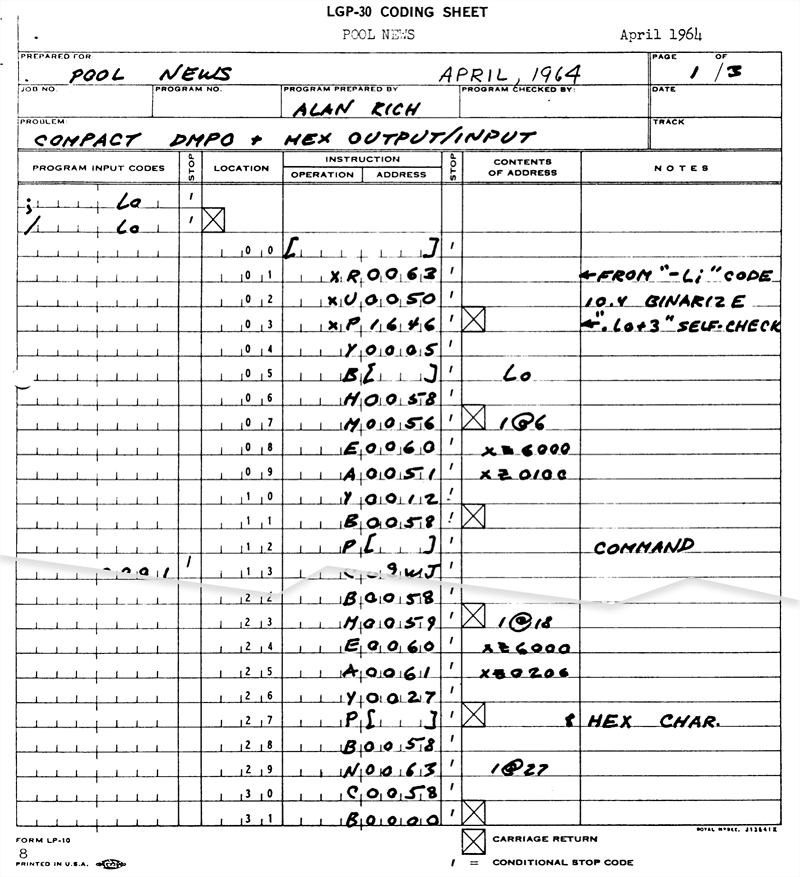 LGP-30 CODING SHEET
POOL NEWS April 1964
PREPARED FOR PAGE OF
POOL NEWS APRIL, 1964 1 / 3
JOB NO. PROGRAM NO. PROGRAM PREPARED BY PROGRAM CHECKED BY: DATE
ALAN RICH
PROBLEM TRACK
COMPACT DMPO + HEX OUTPUT/INPUT
PROGRAM INPUT CODES STOP LOCATION INSTRUCTION STOP CONTENTS OF ADDRESS NOTES
OPERATION ADDRESS
; Lo '
/ Lo '
0 0 [ ] '
0 1 XR0063 ' ←FROM "-Li" CODE
0 2 XU0050 ' 10.4 BINARIZE
0 3 XP1646 ' ←".Lo+3" SELF-CHECK
0 4 Y0005 '
0 5 B[ ] ' Lo
0 6 H0058 '
0 7 M0056 ' 1@6
0 8 E0060 ' XZ6000
0 9 A0051 ' XZ0100
1 0 Y0012 '
1 1 B0058 '
1 2 P[ ] ' COMMAND
1 3
2 2 B0058 '
2 3 M0059 ' 1@18
2 4 E0060 ' XZ6000
2 5 A0061 ' XZ0206
2 6 Y0027 '
2 7 P[ ] ' 8 HEX CHAR.
2 8 B0058 '
2 9 N0063 ' 1@27
3 0 C0058 '
3 1 B0000 '
FORM LP-10 CARRIAGE RETURN
8
PRINTED IN U.S.A. ' = CONDITIONAL STOP CODE